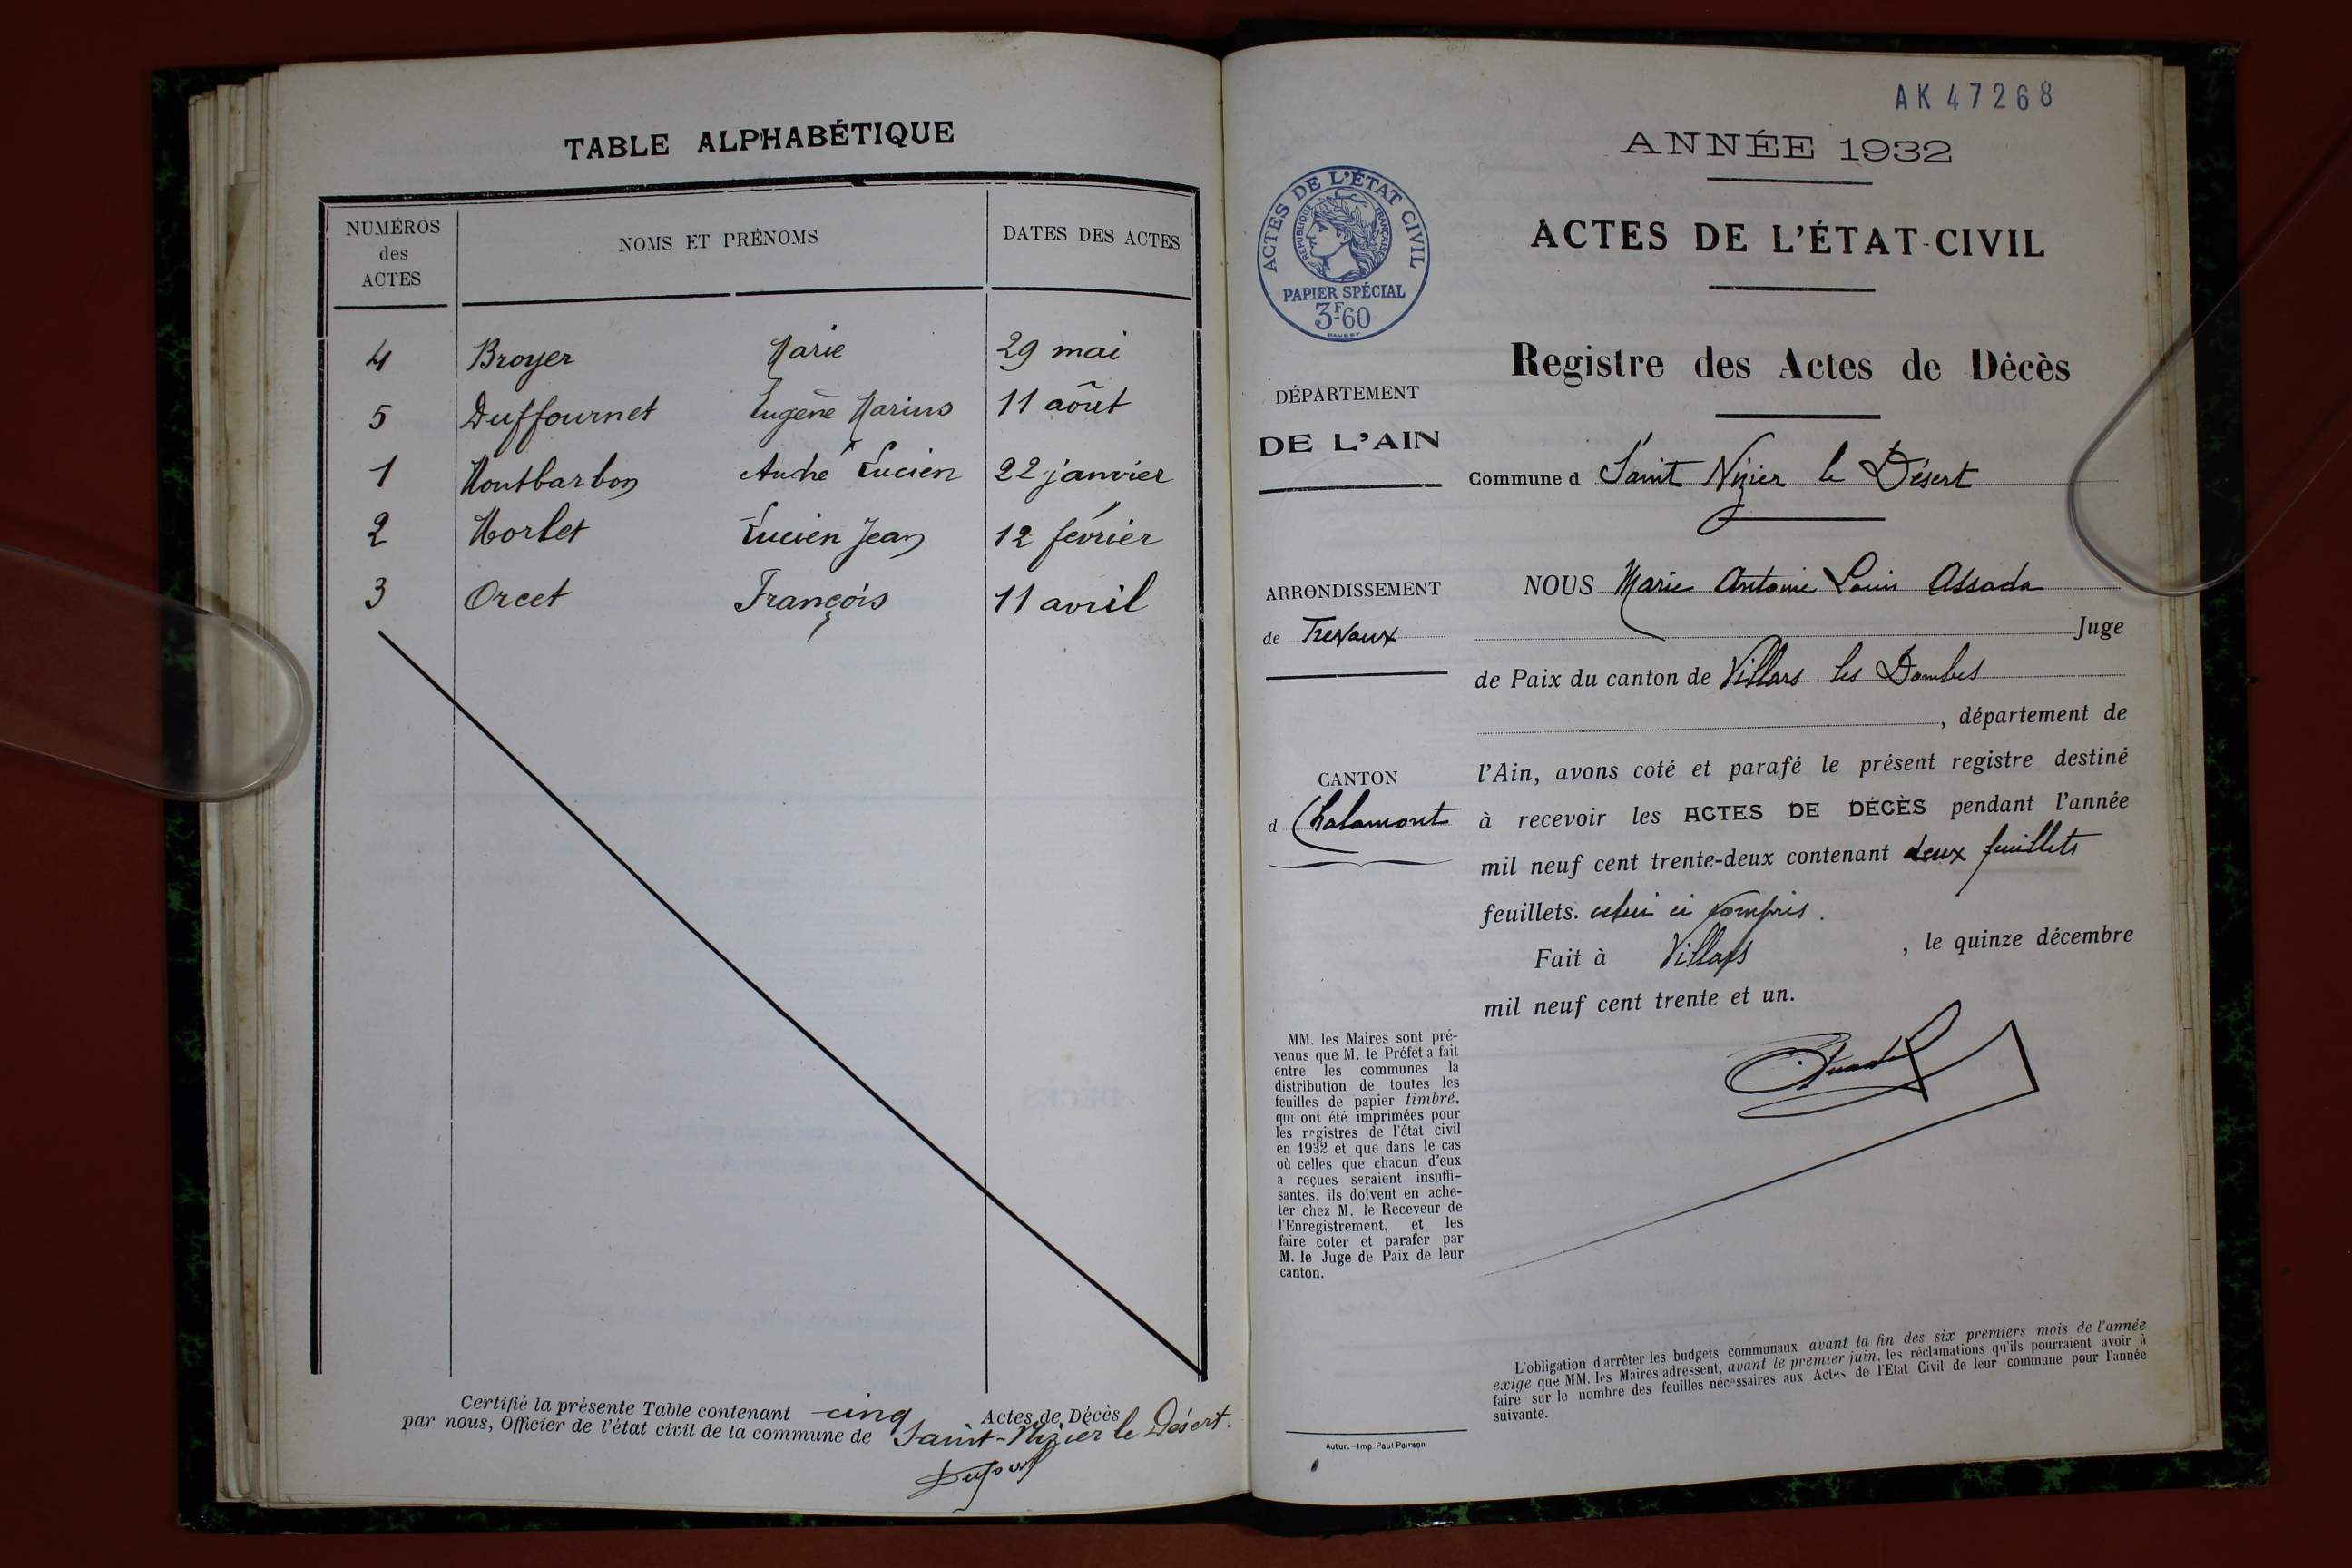 TABLE ALPHABÉTIQUE
NUMÉROS des ACTES NOMS ET PRÉNOMS DATES DES ACTES
4 Broyer Marie 29 mai
5 Duffournet Eugène Marius 11 août
1 Montbarbon André Lucien 22 janvier
2 Morlet Lucien Jean 12 février
3 Orcet François 11 avril
Certifié la présente Table contenant cinq Actes de Décès
par nous, Officier de l'état civil de la commune de Saint-Nizier le Désert.
AK 47268
ANNÉE 1932
ACTES DE L'ÉTAT CIVIL
RÉPUBLIQUE FRANÇAISE
PAPIER SPÉCIAL
3F60
ACTES DE L'ÉTAT-CIVIL
Registre des Actes de Décès
DÉPARTEMENT
DE L'AIN
Commune d Saint Nizier le Désert
ARRONDISSEMENT
de Trévoux
CANTON
d Chalamont
NOUS Marie Antoine Louis Assada
Juge
de Paix du canton de Villars les Dombes
, département de
l'Ain, avons coté et parafé le présent registre destiné
à recevoir les ACTES DE DÉCÈS pendant l'année
mil neuf cent trente-deux contenant deux feuillets
feuillets. celui ci compris.
Fait à Villars , le quinze décembre
mil neuf cent trente et un.
MM. les Maires sont pré-
venus que M. le Préfet a fait
entre les communes la
distribution de toutes les
feuilles de papier timbré,
qui ont été imprimées pour
les registres de l'état civil
en 1932 et que dans le cas
où celles que chacun d'eux
a reçues seraient insuffi-
santes, ils doivent en ache-
ter chez M. le Receveur de
l'Enregistrement, et les
faire coter et parafer par
M. le Juge de Paix de leur
canton.
L'obligation d'arrêter les budgets communaux avant la fin des six premiers mois de l'année
exige que MM. les Maires adressent, avant le premier juin, les réclamations qu'ils pourraient avoir à
faire sur le nombre des feuilles nécessaires aux Actes de l'Etat Civil de leur commune pour l'année
suivante.
Autun.–Imp. Paul Poirson